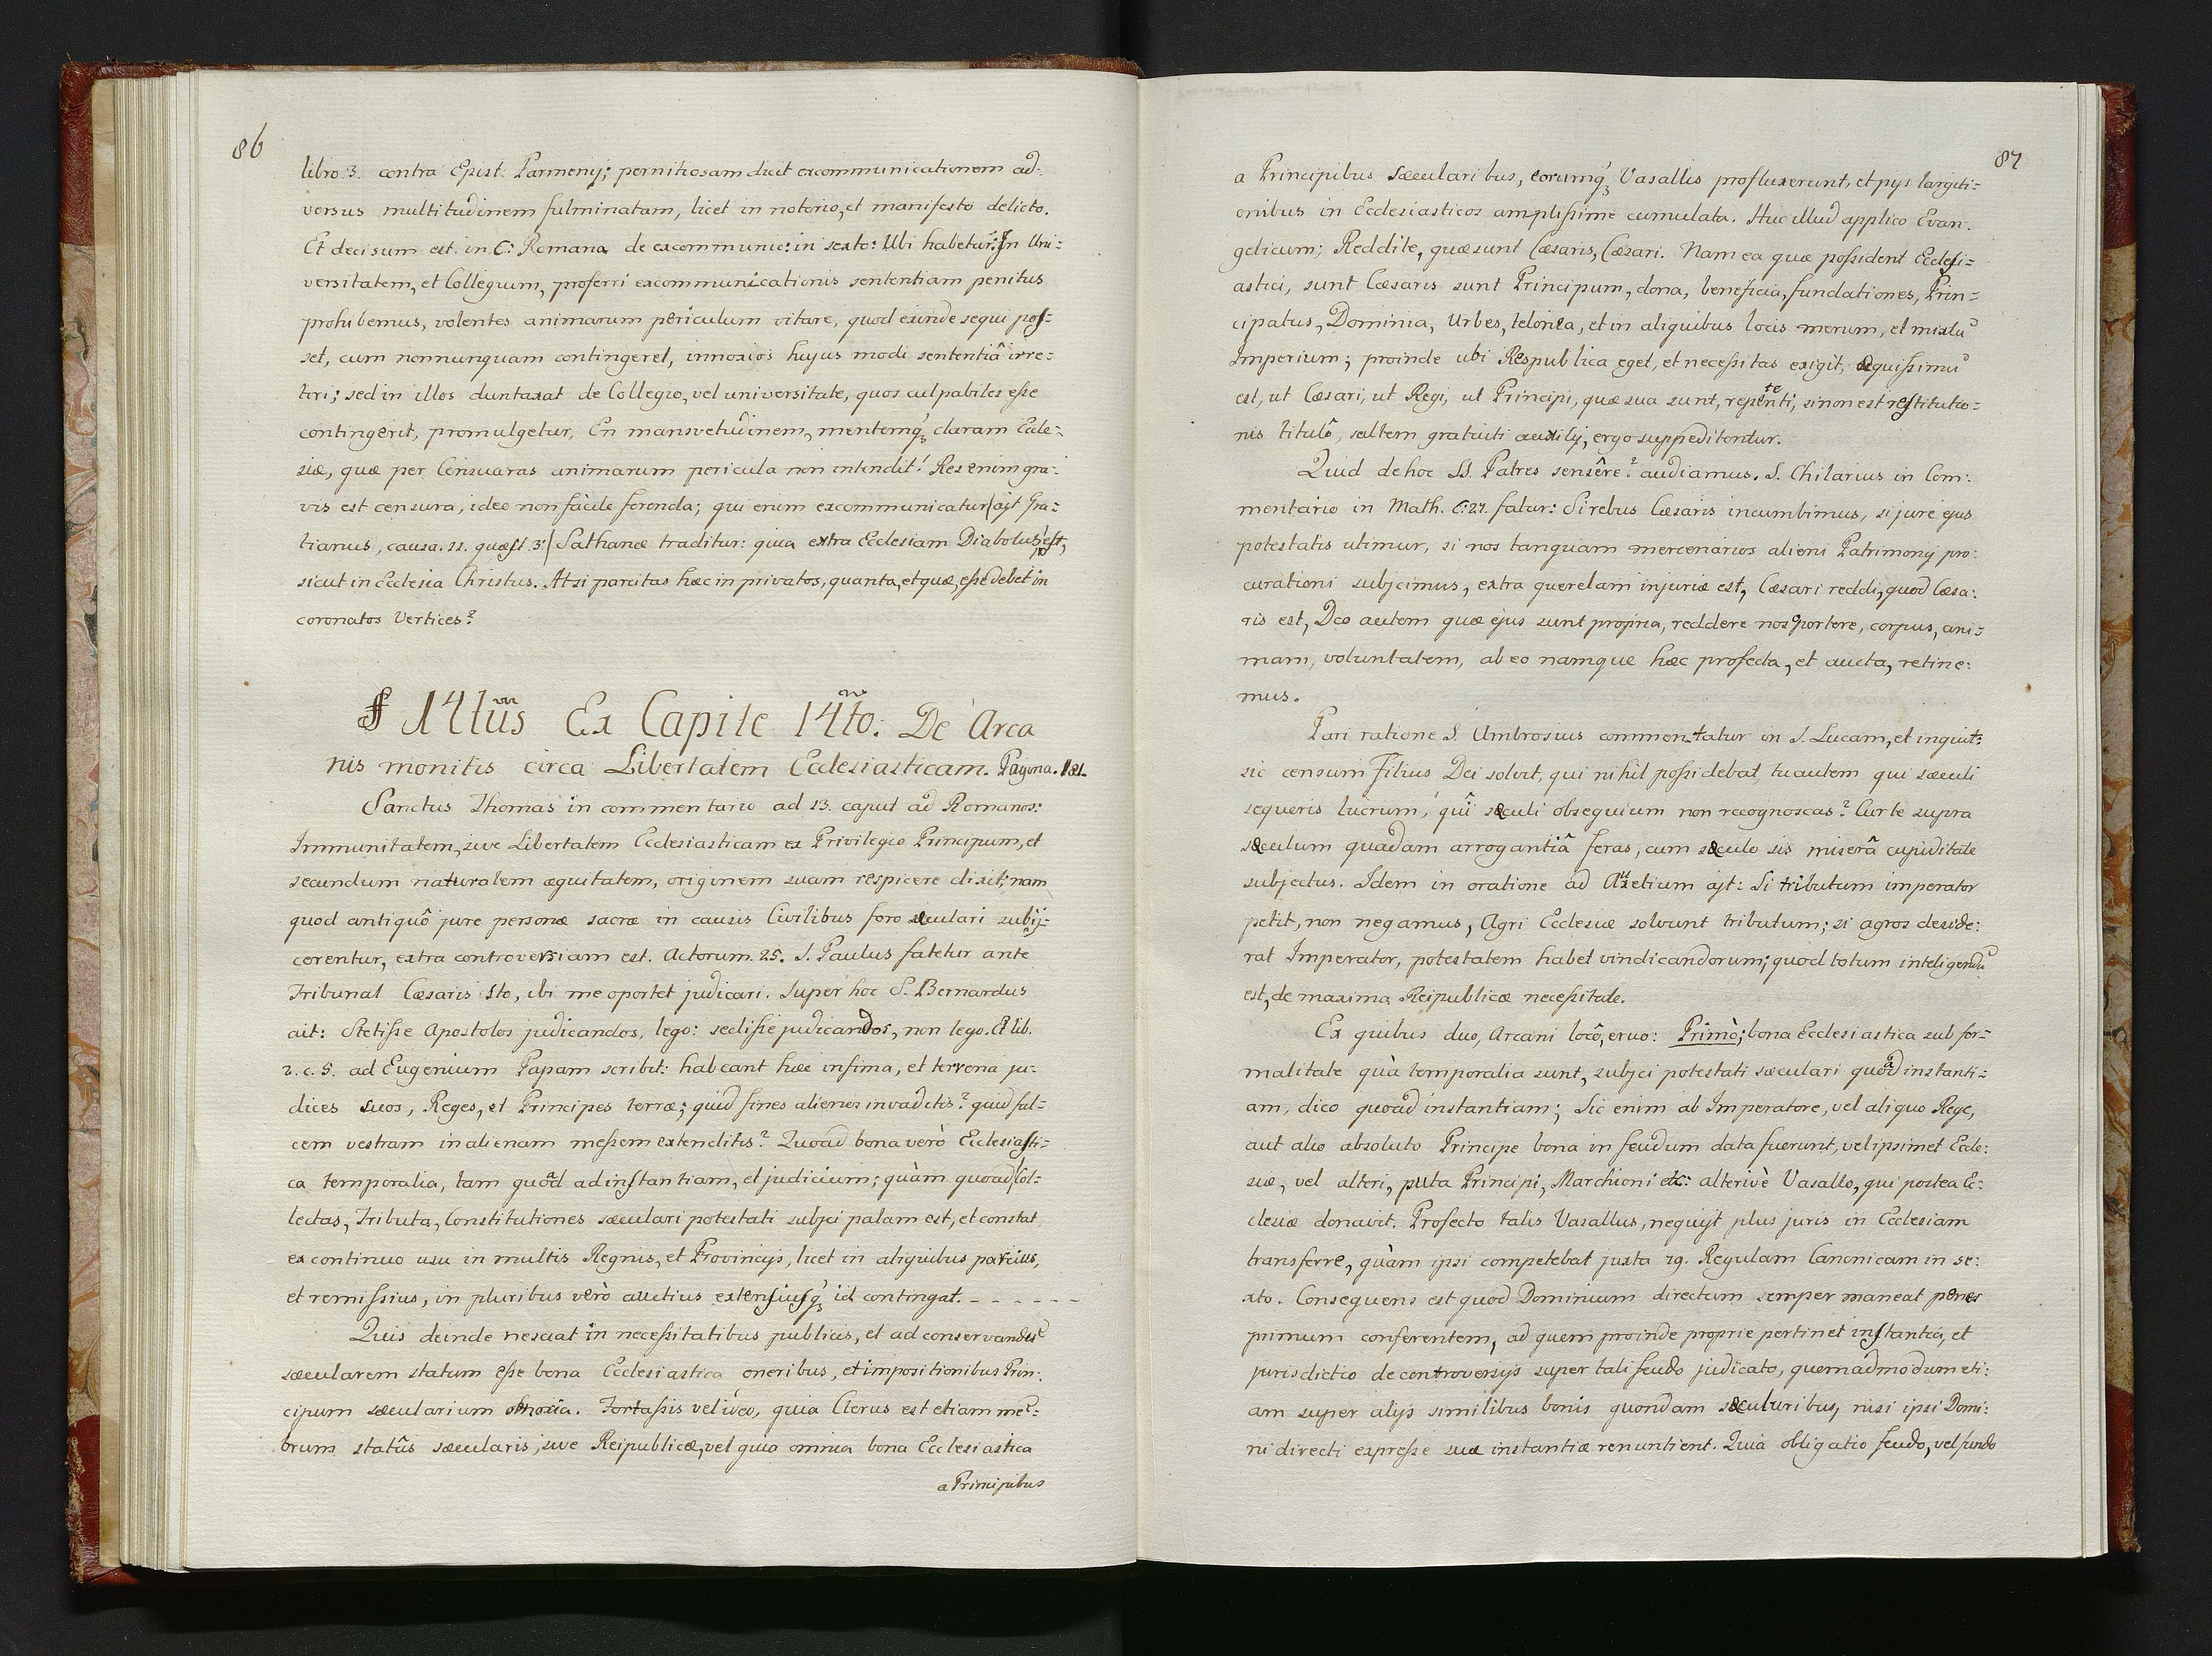 86
libro. 3. contra Epist. Parmenij; pernitiosam dicit excommunicationem ad-
versus multitudinem fulminatam, licet in notorio, et manifesto delicto.
Et decisum est. in C: Romana de excommunic: in sexto: Ubi habetur: In Uni-
versitatem, et Collegium, proferri excommunicationis sententiam penitus
prohibemus, volentes animarum periculum vitare, quod exinde sequi pos-
set, cum nonnunquam contingeret, innoxios hujus modi sententiâ irre-
tiri; sed in illos duntaxat de Collegio, vel universitate, quos culpabiles esse
contingerit, promulgetur, En mansvetudinem, mentemq́ꝫ claram Eccle-
siæ, quæ per Censuras animarum pericula non intendit! Res enim gra-
vis est censura, ideo non facile ferenda; qui enim excommunicatur/ ajt Gra-
tianus, causa. 11. quæst 3./ Sathanæ traditur: quia extra Ecclesiam Diabolus est,
sicut in Ecclesia Christus. At si parcitas hæc in privatos, quanta, et quæ, esse debet in
coronatos Vertices?
§ 14tus Ex Capite 14to: De Arca
nis monitis circa Libertatem Ecclesiasticam. Pagina. 181.
Sanctus Thomas in commentario ad 13. caput ad Romanos:
Immunitatem, sive Libertatem Ecclesiasticam ex Privilegio Principum, et
secundum naturalem æquitatem, originem suam respicere dixit; nam
quod antiquô jure personæ sacræ in causis Civilibus foro sæculari subij-
cerentur, extra controversiam est. Actorum. 25. S. Paulus fatetur ante
Tribunal Cæsaris sto, ibi me oportet judicari. Super hoc S. Bernardus
ait: Stetisse Apostolos judicandos, lego: sedisse judicandos, non lego. Et lib.
2. c. 5. ad Eugenium Papam scribit: habeant hæc infima, et terrena ju-
dices suos, Reges, et Principes terræ; quid fines alienos invaditis? quid fal-
cem vestram in alienam messem extenditis? Quoad bona verò Ecclesiasti-
ca temporalia, tam quoad ad instantiam, et judicium; quàm quoad Col-
lectas, Tributa, Constitutiones sæculari potestati subjci palam est, et constat
ex continuo usu in multis Regnis, et Provincijs, licet in aliquibus parcius,
et remissius, in pluribus verò auctius extensiusq́ꝫ id contingat. - - - - - -
Quis deinde nesciat in necessitatibus publicis, et ad conservandu
sæcularem statum esse bona Ecclesiastica oneribus, et impositionibus Prin-
cipum sæcularium obnoxia. Fortassis vel ideo, quia Clerus est etiam me-
brum statûs sæcularis, sive Reipublicæ, vel quia omnia bona Ecclesiastica
a Principibus
87
a Principibus sæcularibus, eorumq́ꝫ Vasallis profluxerunt, et pys largiti-
onibus in Ecclesiasticos amplissime cumulata. Huc illud applico Evan-
gelicum; Reddite, quæ sunt Cæsaris, Cæsari. Nam ea quæ possident Ecclesi-
astici, sunt Cæsaris sunt Principum, dona, beneficia, fundationes, Prin-
cipatus, Dominia, Urbes, telonea, et in aliquibus locis merum, et mixtu
Imperium; proinde ubi Respublica eget, et necessitas exigit, æquissimu
est, ut Cæsari, ut Regi, ut Principi, quæ sua sunt, repetenti, si non est restitutio-
nis titulô, saltem gratuiti auxilij, ergo suppeditentur.
Quid de hoc SS. Patres sensêre? audiamus. S. Chilarius in Com-
mentario in Math. C: 27. fatur: Si rebus Cæsaris incumbimus, si jure ejus
potestatis utimur, si nos tanquam mercenarios alieni Patrimonij pro-
curationi subjcimus, extra querelam injuriæ est, Cæsari reddi, quod Cæsa-
ris est, Deo autem quæ ejus sunt propria, reddere nos oportere, corpus, ani-
mam, voluntatem, ab eo namque hæc profecta, et aucta, retine-
mus.
Pari ratione S. Ambrosius commentatur in S. Lucam, et inquit:
sic censum Filius Dei solvit, qui nihil possidebat, tu autem qui sæculi
sequeris lucrum, quî sæculi obsequium non recognoscas? Cur te supra
sæculum quadam arrogantiâ feras, cum sæculo sis miserâ cupiditate
subjectus. Idem in oratione ad Auxetium ajt: Si tributum imperator
petit, non negamus, Agri Ecclesiæ solvunt tributum; si agros deside-
rat Imperator, potestatem habet vindicandorum; quod totum inteligendu
est, de maxima Reipublicæ necessitate.
Ex quibus duo, Arcani locô, eruo: Primò; bona Ecclesiastica sub for-
malitate quà temporalia sunt, subjci potestati sæculari quoad instanti-
am, dico quoad instantiam; Sic enim ab Imperatore, vel aliquo Rege,
aut alio absoluto Principe bona in feudum data fuerunt, vel ipsimet Eccle-
siæ, vel alteri, puta Principi, Marchioni etc: alterivè Vasallo, qui postea Ec-
clesiæ donavit. Profecto talis Vasallus, nequijt plus juris in Ecclesiam
transferre, quàm ipsi competebat juxta 79. Regulam Canonicam in se-
xto. Consequens est quod Dominium directum semper maneat penes
primum conferentem, ad quem proinde proprie pertinet instantia, et
jurisdictio de controversijs super tali feudo judicato, quemadmodum eti-
am super alijs similibus bonis quondam sæcularibus, nisi ipsi Domi-
ni directi expresse suæ instantiæ renuntient. Quia obligatio feudo, vel fundo